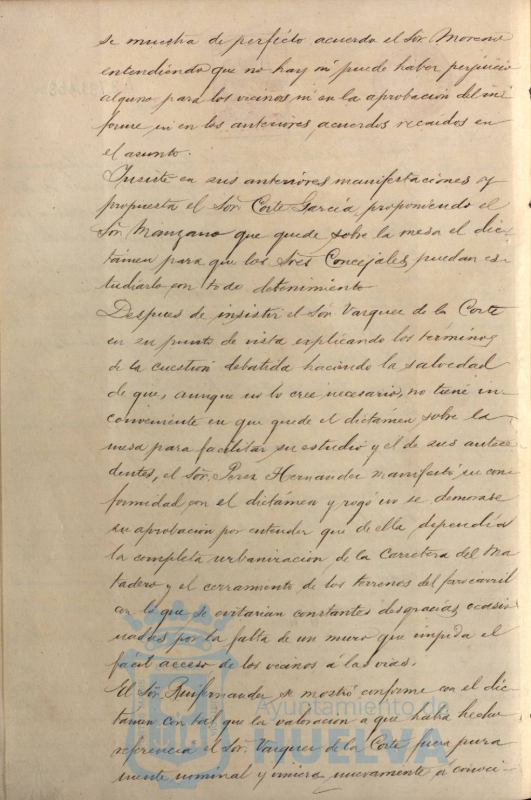 se muestra de perfecto acuerdo el Sor. Moreno
entendiendo que no hay ni puede haber perjuicio
alguno para los vecinos ni en la aprobación del in
forme ni en los anteriores acuerdos recaidos en
el asunto.
Insiste en sus anteriores manifestaciones y
propuesta el Sor. Corte García, proponiendo el
Sor. Manzano que quede sobre la mesa el dic-
támen para que los Sres. Concejales puedan es-
tudiarlo con todo detenimiento
Despues de insistir el Sor. Vazquez de la Corte
en su punto de vista explicando los términos
de la cuestión debatida haciendo la salvedad
de que, aunque no lo cree necesario, no tiene in-
conveniente en que quede el dictámen sobre la
mesa para facilitar su estudio y el de sus antece
dentes, el Sor. Perez Hernandez manifestó su con
formidad con el dictámen y rogó no se demorase
su aprobación por entender que de ella dependía
la completa urbanizacion de la Carretera del Ma-
tadero y el cerramiento de los terrenos del ferrocarril
con lo que se evitarían constantes desgracias ocasio
nadas por la falta de un muro que impida el
fácil acceso de los vecinos á las vias.
El Sor. Ruifernandez se mostró conforme con el dic
tamen con tal que la valoración a que había hecho
referencia el Sor. Vazquez de la Corte fuera pura
mente nominal y viniera nuevamente á conoci-
Ayuntamiento de
HUELVA